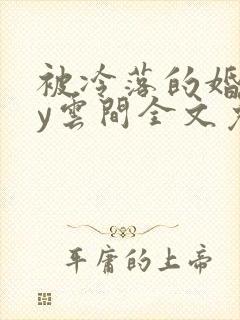 被冷落的婚
y雲間全文
平庸的上帝